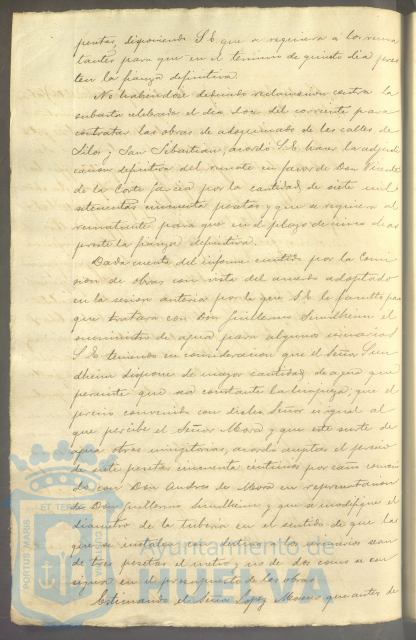 pesetas, disponiendo S.E. que se requiera a los rema
tantes para que en el termino de quinto dia pres
ten la fianza definitiva.
No habiéndose deducido reclamacion contra la
subasta celebrada el dia dos del corriente para
contratar las obras de adoquinado de las calles de
Silos y San Sebastian, acordó S.E. hacer la adjudi
cacion definitiva del remate en favor de Don Vicente
de la Corte Garcia por la cantidad de siete mil
setecientas cincuenta pesetas y que se requiera al
rematante para que en el plazo de cinco dias
preste la fianza definitiva.
Dada cuenta del informe emitido por la Comi
sion de obras con vista del acuerdo adoptado
en la sesion anterior por lo que S.E. le facultó para
que tratara con Don Guillermo Sundheim el
suministro de agua para algunos
S.E. teniendo en consideracion que el Señor Sun
dheim dispone de mayor cantidad de agua que
permite que sea constante la limpieza; que el
precio convenido con dicho Señor es igual al
que percibe el Señor Mora y que este surte de
agua otros urinarios, acordó aceptar el precio
de siete pesetas cincuenta centimos por caño conveni
do con Don Andres de Mora en representacion
de Don Guillermo Sundheim y que se modifique el
diametro de la tuberia en el sentido de que las
que se instalen con destino a los urinarios sean
de tres pesetas el metro y no de dos como se con
signa en el presupuesto de las obras.
Estimando el Señor Lopez Moreno que antes de
PORTUS MARIS
ET TERRAE
CUSTODIA
Ayuntamiento de
HUELVA